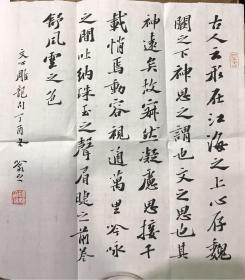 古人云形在江海之上心存魏
闕之下神思之謂也文之思也其
神遠矣故寂然凝慮思接千
載悄焉動容視通萬里吟詠
之間吐納珠玉之聲眉睫之前卷
舒風雲之色
文心雕龍句丁酉冬